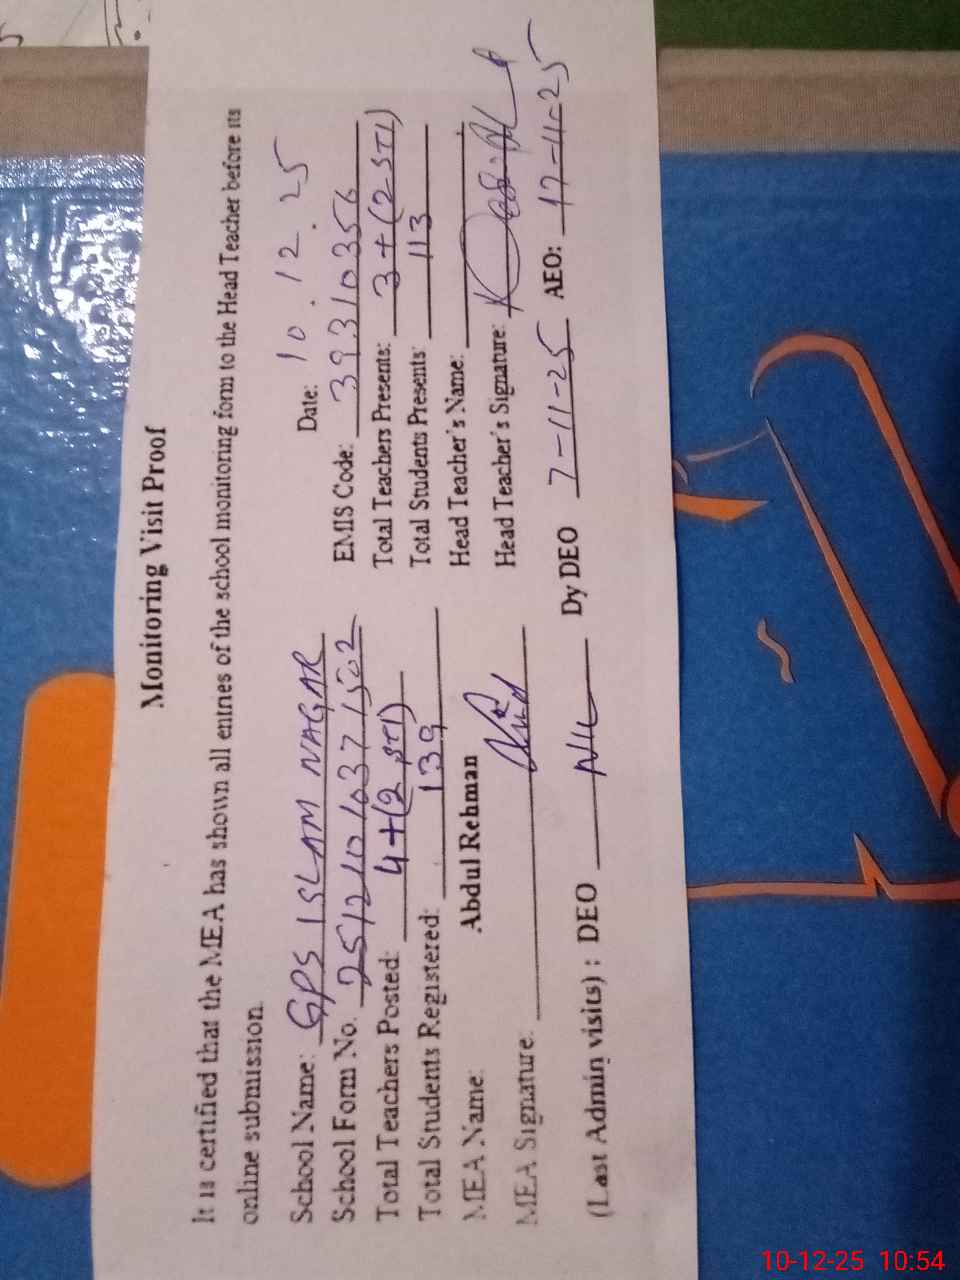 Monitoring Visit Proof
It is certified that the MEA has shown all entries of the school monitoring form to the Head Teacher before its
online submission.
Date: 10.12.25
School Name: GPS ISLAM NAGAR EMIS Code: 39310356
School Form No. 25121010371502 Total Teachers Presents: 3+(2 STI)
Total Teachers Posted: 4+(2 STI) Total Students Presents: 113
Total Students Registered: 139 Head Teacher's Name:
MEA Name: Abdul Rehman Head Teacher's Signature:
MEA Signature:
(Last Admin visits) : DEO NIL Dy DEO 7-11-25 AEO: 17-11-25
10-12-25 10:54